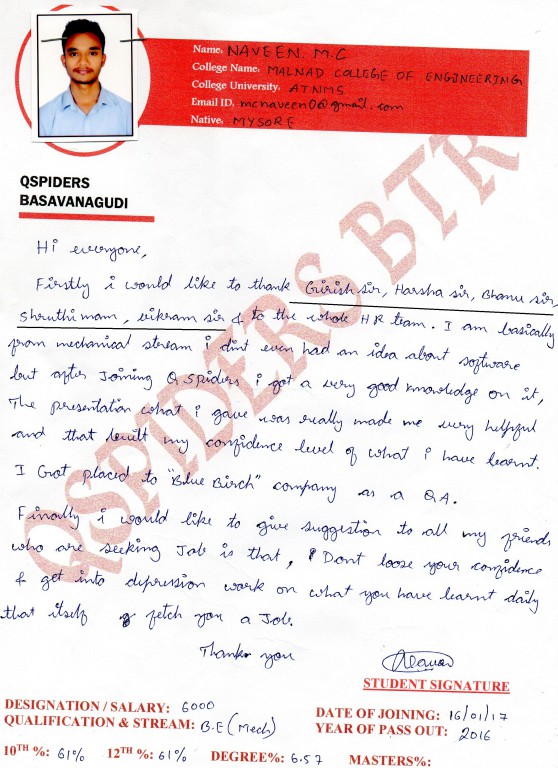 Name: NAVEEN. M.C
College Name: MALNAD COLLEGE OF ENGINEERING
College University: ATNMS
Email ID: mcnaveen06@gmail.com
Native: MYSORE
QSPIDERS
BASAVANAGUDI
QSPIDERS BTR
Hi everyone,
Firstly i would like to thank Girish sir, Harsha sir, Bhanu sir,
Shruthi mam, vikram sir & to the whole HR team. I am basically
from mechanical stream i dint even had an idea about software
but after Joining Qspiders i got a very good knowledge on it,
The presentation what i gave was really made me very helpful
and that built my confidence level of what i have learnt.
I Got placed to "Blue Birch" company as a QA.
Finally i would like to give suggestion to all my friends
who are seeking Job is that, Dont loose your confidence
& get into dipression work on what you have learnt daily
that itself fetch you a Job.
Thank you
STUDENT SIGNATURE
DESIGNATION / SALARY: 6000
QUALIFICATION & STREAM: B.E (Mech)
DATE OF JOINING: 16/01/17
YEAR OF PASS OUT: 2016
10TH %: 61% 12TH %: 61% DEGREE%: 6.57 MASTERS%: